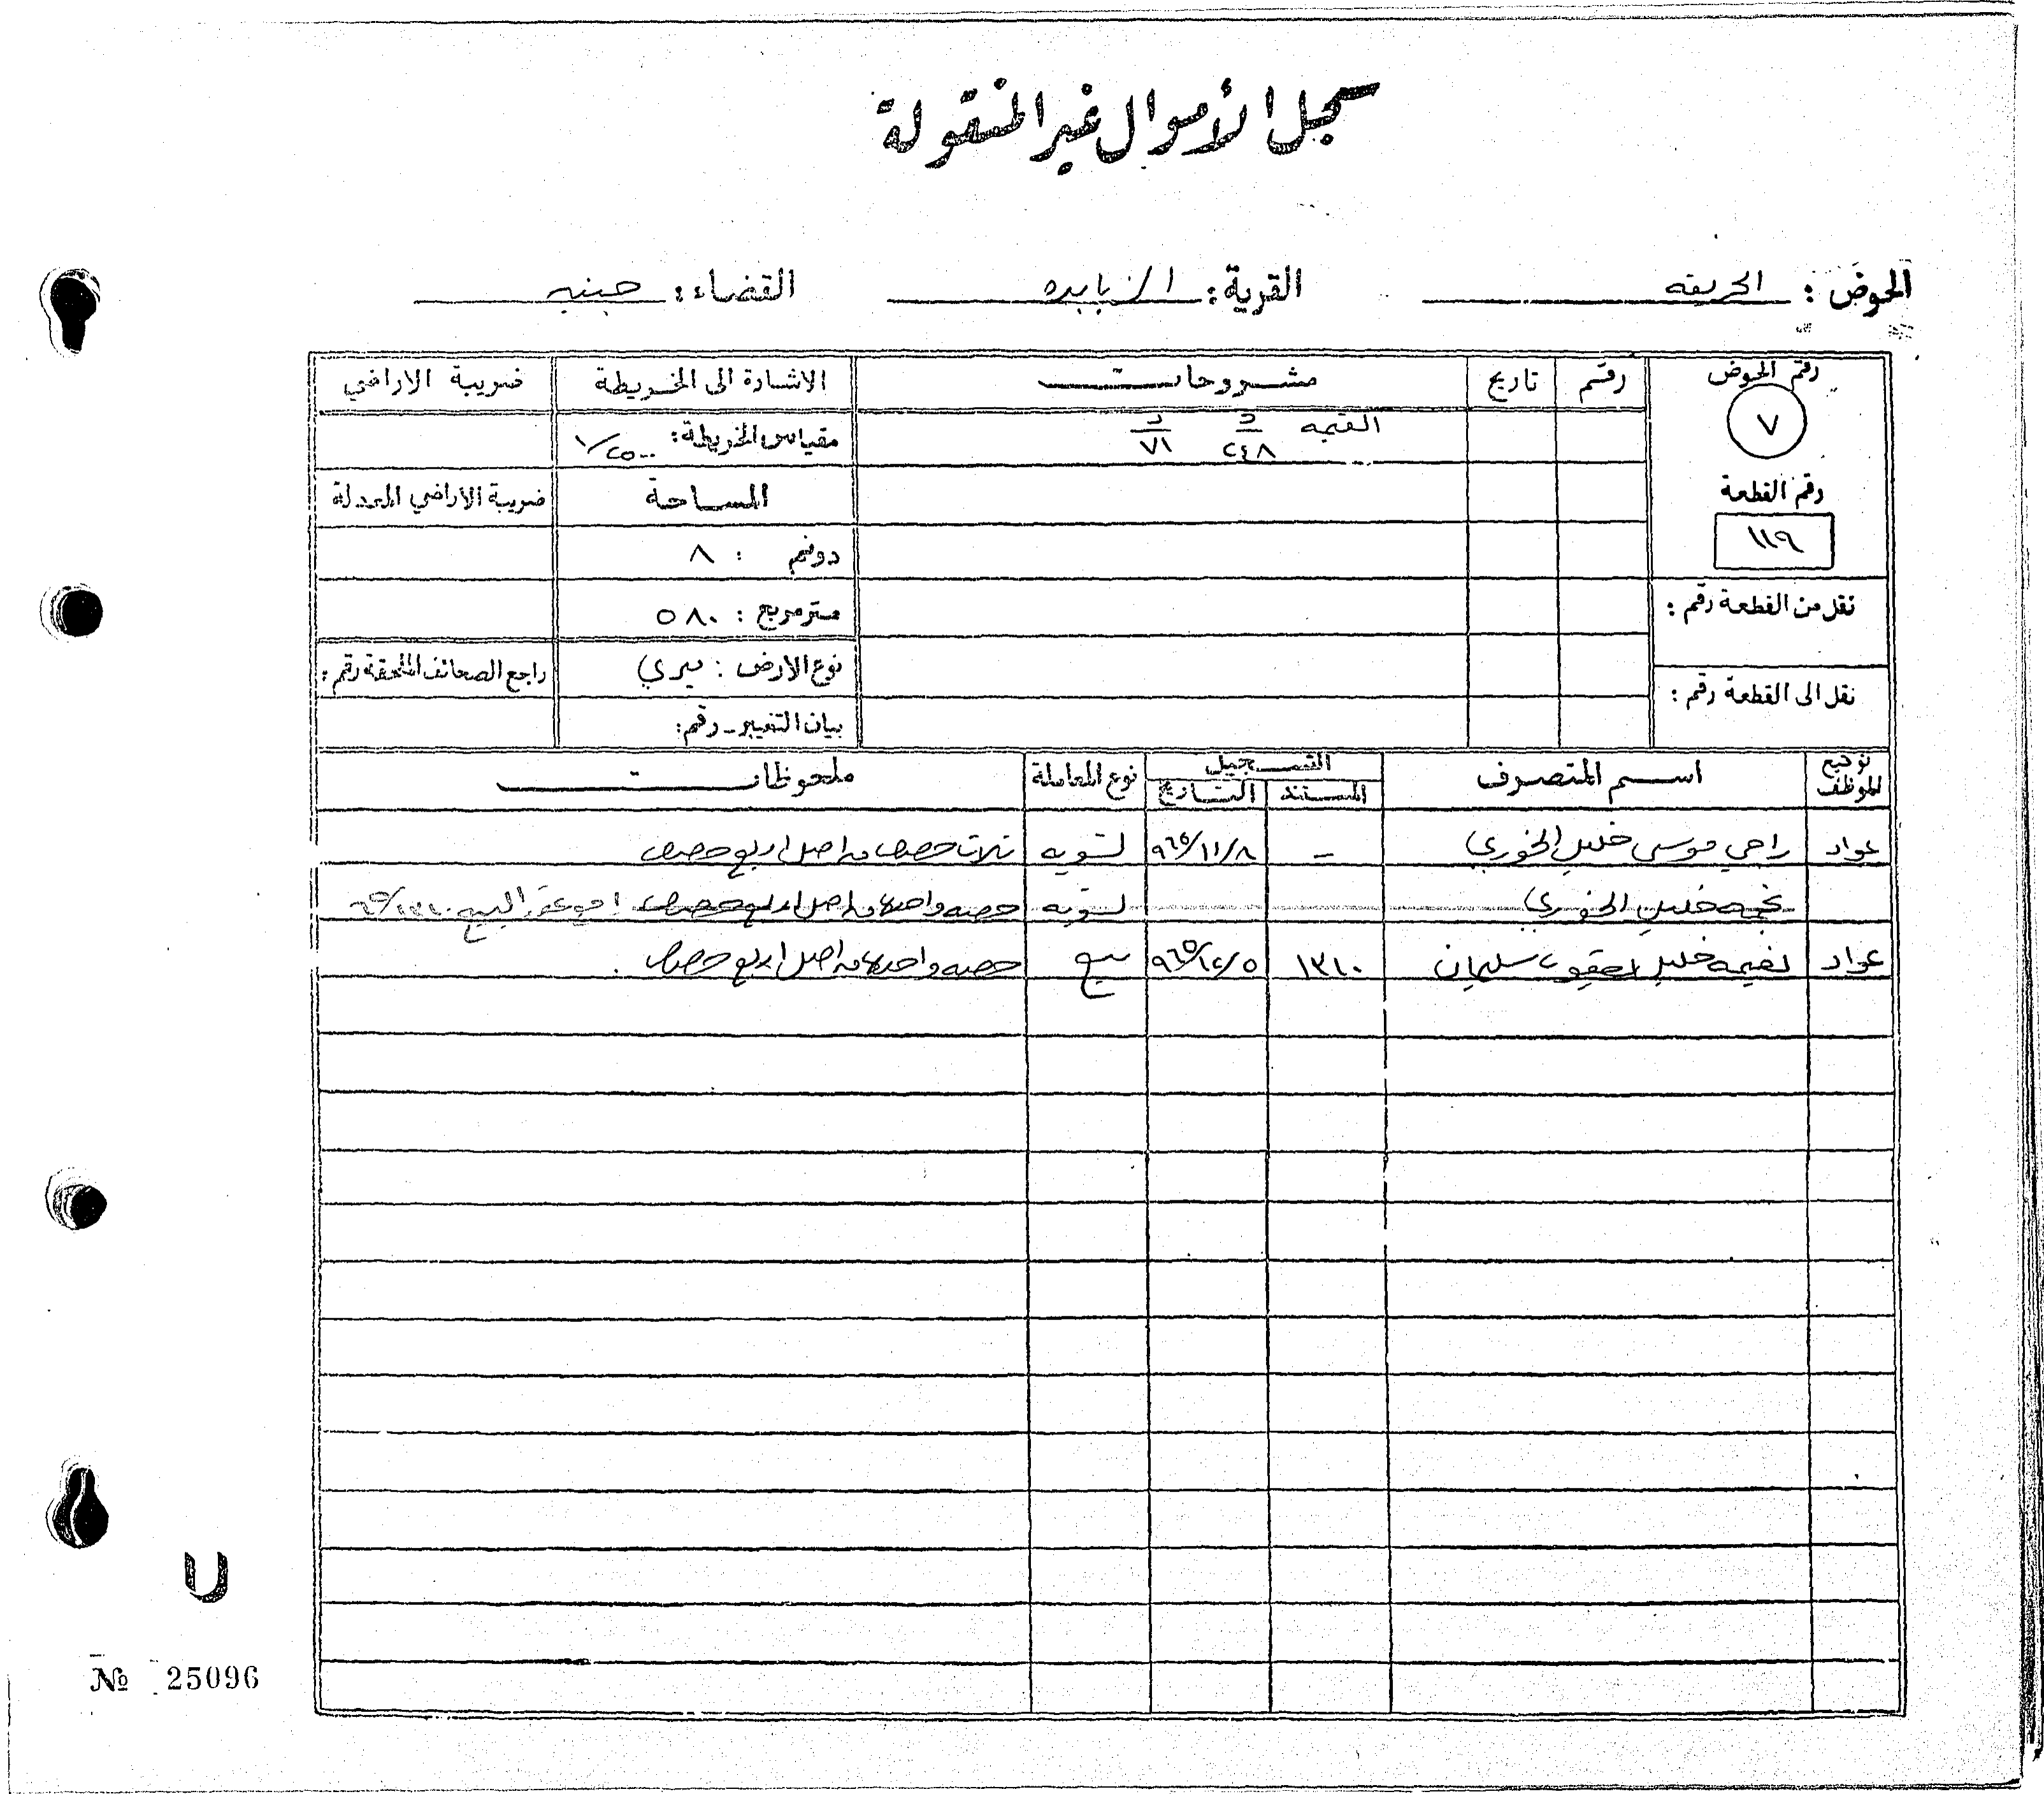 سجل الأموال غير المنقولة
الحوض : الحريقه القرية : الزبابده القضاء : جنين
رقم الحوض رقم تاريخ مشروحات الاشارة الى الخريطة ضريبة الاراضي
٧ القيمه د ٢٤٨ د ٧١ مقياس الخريطة : ١/٢٥٠٠
رقم القطعة المساحة ضريبة الاراضي المعدلة
١١٩ دونم : ٨
نقل من القطعة رقم : متر مربع : ٥٨٠
نوع الارض : ميري راجع الصحائف الملحقة رقم :
نقل الى القطعة رقم : بيان التغيير - رقم :
توقيع الموظف اسم المتصرف التسجيل نوع المعاملة ملحوظات
المستند التاريخ
عواد راجي موسى خليل الخوري - ٩٦٥/١١/٨ تسويه ثلاث حصص من اصل اربع حصص
نجمه خليل الخوري تسويه حصه واحده من اصل اربع حصص البيع ١٣١٠/٦٥
عواد نعيمه خليل يعقوب سليمان ١٣١٠ ٩٦٥/١٢/٥ بيع حصه واحده من اصل اربع حصص .
№ 25096